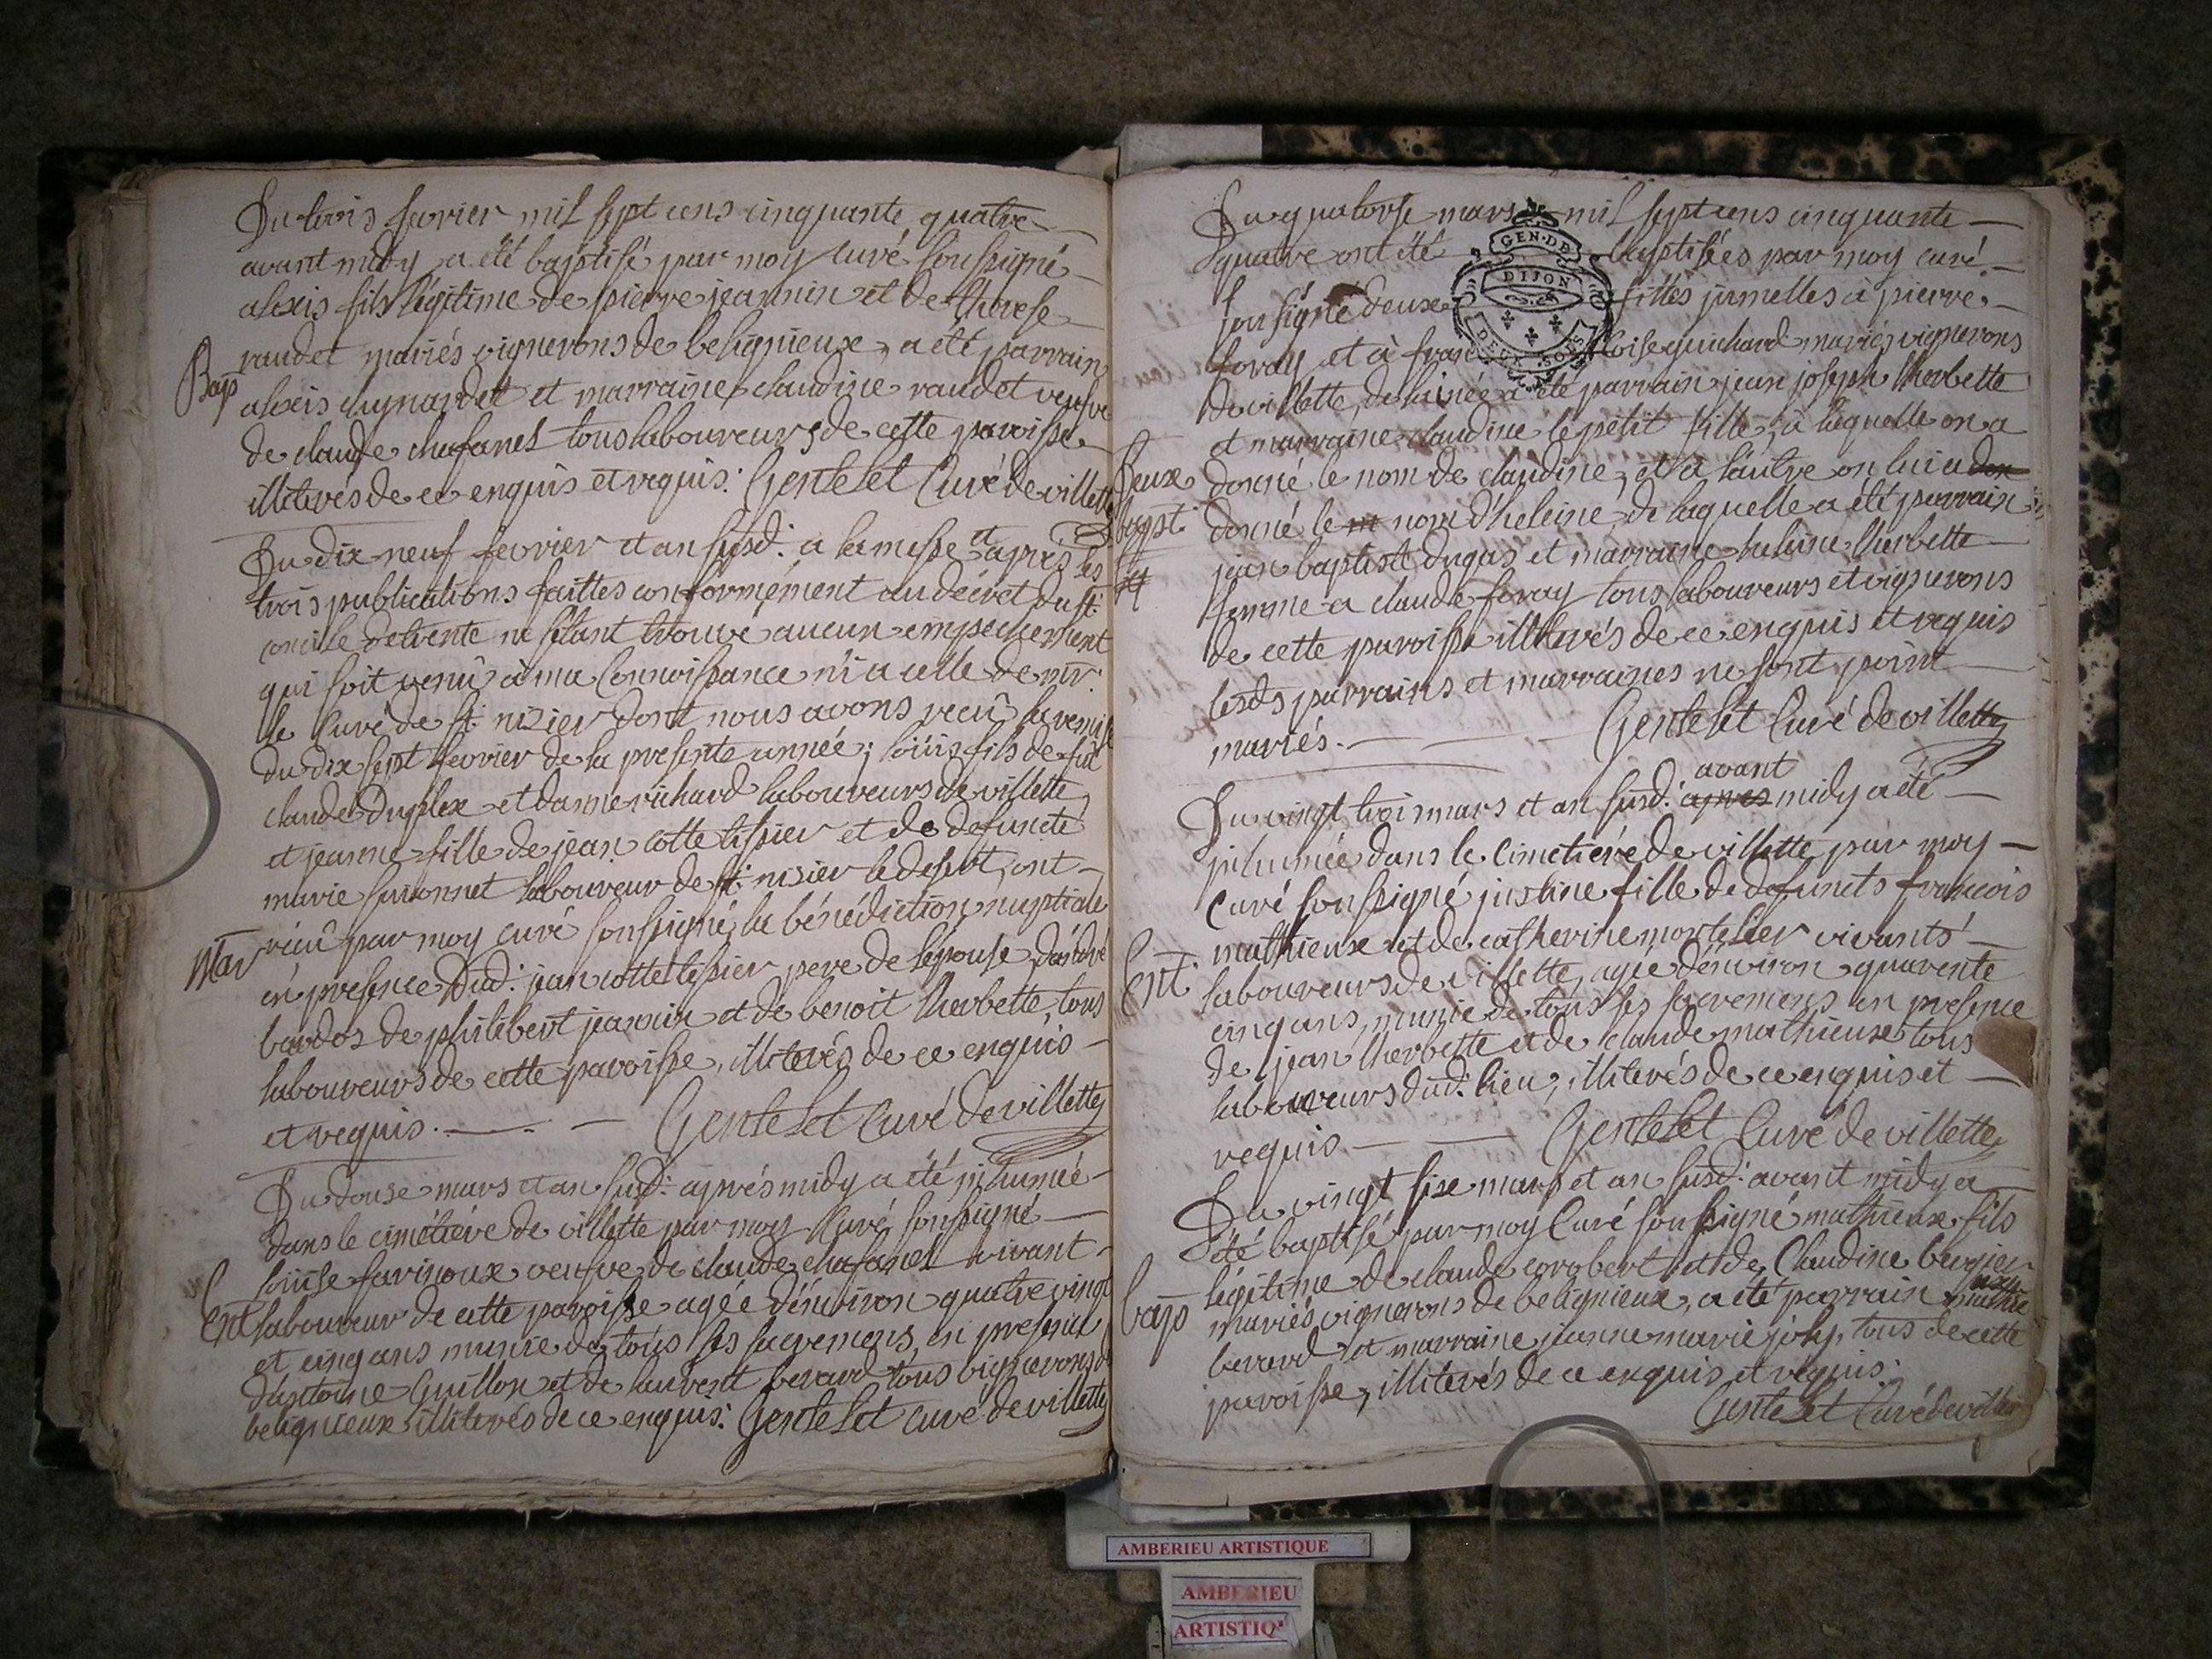 Du trois fevrier mil sept cens cinquante quatre
avant midy a été baptisé par moy curé soussigné
alexis fils légitime de pierre jeannin et de therese
raudet mariés vignerons de belignieux, a été parrain
Bap
alexis chynardet et marraine claudine raudet veufve
de claude chafanel tous laboureurs de cette paroisse
illiterés de ce enquis et requis. Gentelet Curé de villette
Du dix neuf fevrier et an susd: a la messe et apres les
trois publications faittes conformément au décret du st:
concile de trente ne s'étant trouvé aucun empechement
qui soit venû à ma connoissance ni a celle de mr:
le Curé de st: nizier dont nous avons recû la remise
du dix sept fevrier de la presente année; loüis fils de fut
claude Duplex et d'anne richard laboureurs de villette
et jeanne fille de jean cotte tissier et de defuncte
marie laboureur de st: nizier le desert, ont
Mar
recû par moy curé soussigné la bénédiction nuptiale
en presence dud: jean cotte tissier pere de l'épouse, d'andré
de philibert jeannin et de benoit lherbette, tous
laboureurs de cette paroisse, illiterés de ce enquis
et requis. Gentelet Curé de villette
Du douse mars et an susd: après midy a été inhumée
dans le cimétiére de villette par moy Curé soussigné
loüise favinoux veufve de claude chafanel vivant
Ent
laboureur de cette paroisse agée d'environ quatre vingt
et cinq ans munie de tous ses sacremens, en presence
d'antoine Guillon et de laurent berard tous vignerons de
belignieux illiterés de ce enquis: Gentelet curé de villette
Du quatorse mars mil sept cens cinquante
quatre ont été baptisées par moy curé
GEN. DE
DIJON
DEUX SOLS
soussigné deux filles jumelles à pierre
foray et à françoise guichard mariés vignerons
de villette, de l'ainée a été parrain jean joseph lherbette
et marraine claudine le petit fille, à laquelle on a
Deux
bapst:
donné le nom de claudine, et à l'autre on lui a don
donné le m nom d'heleine, de laquelle a été parrain
jean baptiste dugas et marraine heleine lherbette
femme a claude foray tous laboureurs et vignerons
de cette paroisse illiterés de ce enquis et requis
lesds parrains et marraines ne sont point
mariés. Gentelet Curé de villette
avant
Du vingt trois mars et an susd: apres midy a été
inhumée dans le cimetiére de villette par moy
Curé soussigné justine fille de defuncts francois
mathieux et de catherine montelier vivants
Ent:
laboureurs de villette, agée d'environ quarente
cinq ans, munie de tous ses sacremens en presence
de jean lherbette et de claude mathieux tous
laboureurs dud: lieu, illiterés de ce enquis et
requis Gentelet Curé de villette
Du vingt sixe mars et an susd: avant midy a
été baptisé par moy Curé soussigné mathieux fils
légitime de claude corobert et de Claudine bergier
bap
mariés vignerons de belignieux, a été parrain mathieux
berard et marraine jeanne marie joly, tous de cette
paroisse, illiterés de ce enquis et requis:
Gentelet Curé de villette
AMBERIEU ARTISTIQUE
AMBERIEU
ARTISTIQ'